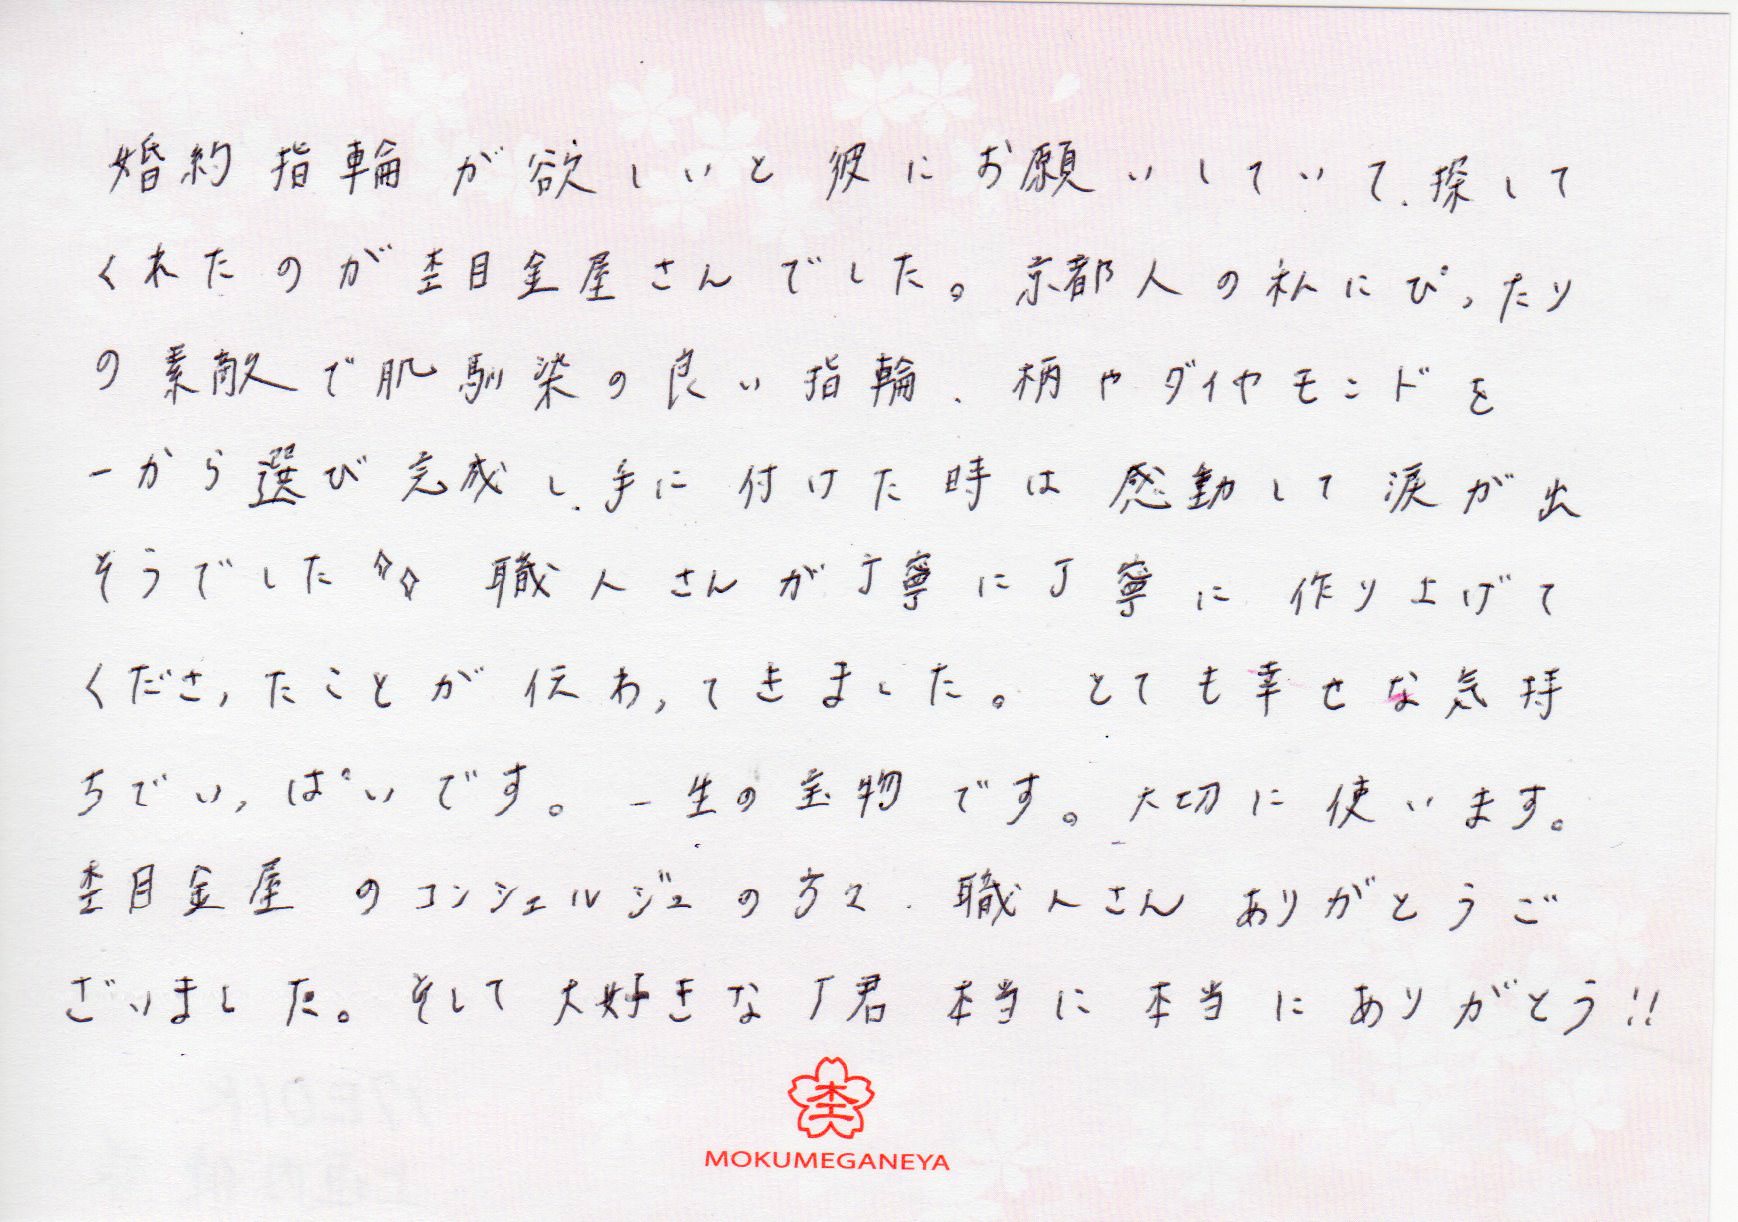 婚約指輪が欲しいと彼にお願いしていて、探して
くれたのが杢目金屋さんでした。京都人の私にぴったり
の素敵で肌馴染の良い指輪、柄やダイヤモンドを
一から選び完成し、手に付けた時は感動して涙が出
そうでした✧✧ 職人さんが丁寧に丁寧に作り上げて
くださったことが伝わってきました。とても幸せな気持
ちでいっぱいです。一生の宝物です。大切に使います。
杢目金屋のコンシェルジュの方々、職人さんありがとうご
ざいました。そして大好きなJ君本当に本当にありがとう!!
杢
MOKUMEGANEYA